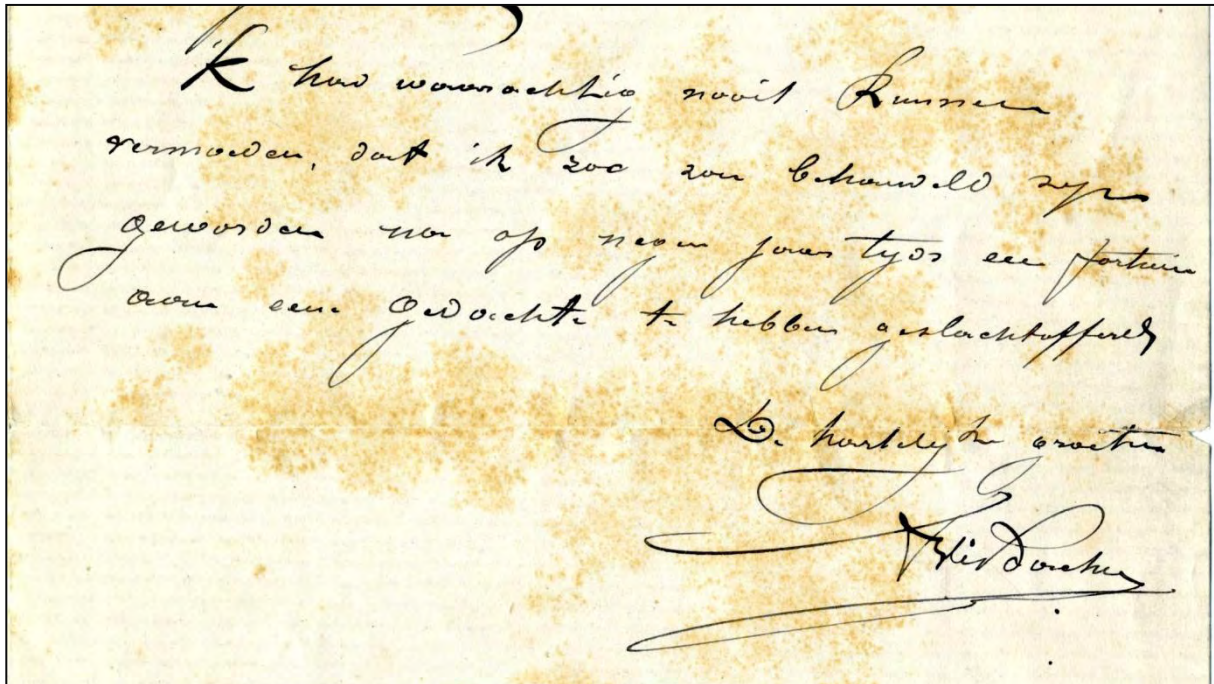 'k had waarachtig nooit kunnen
vermoeden, dat ik zoo zou behandeld zyn
geworden na op negen jaar tyds een fortuin
aan eene gedachte te hebben geslachtofferd
De hartelyke groeten